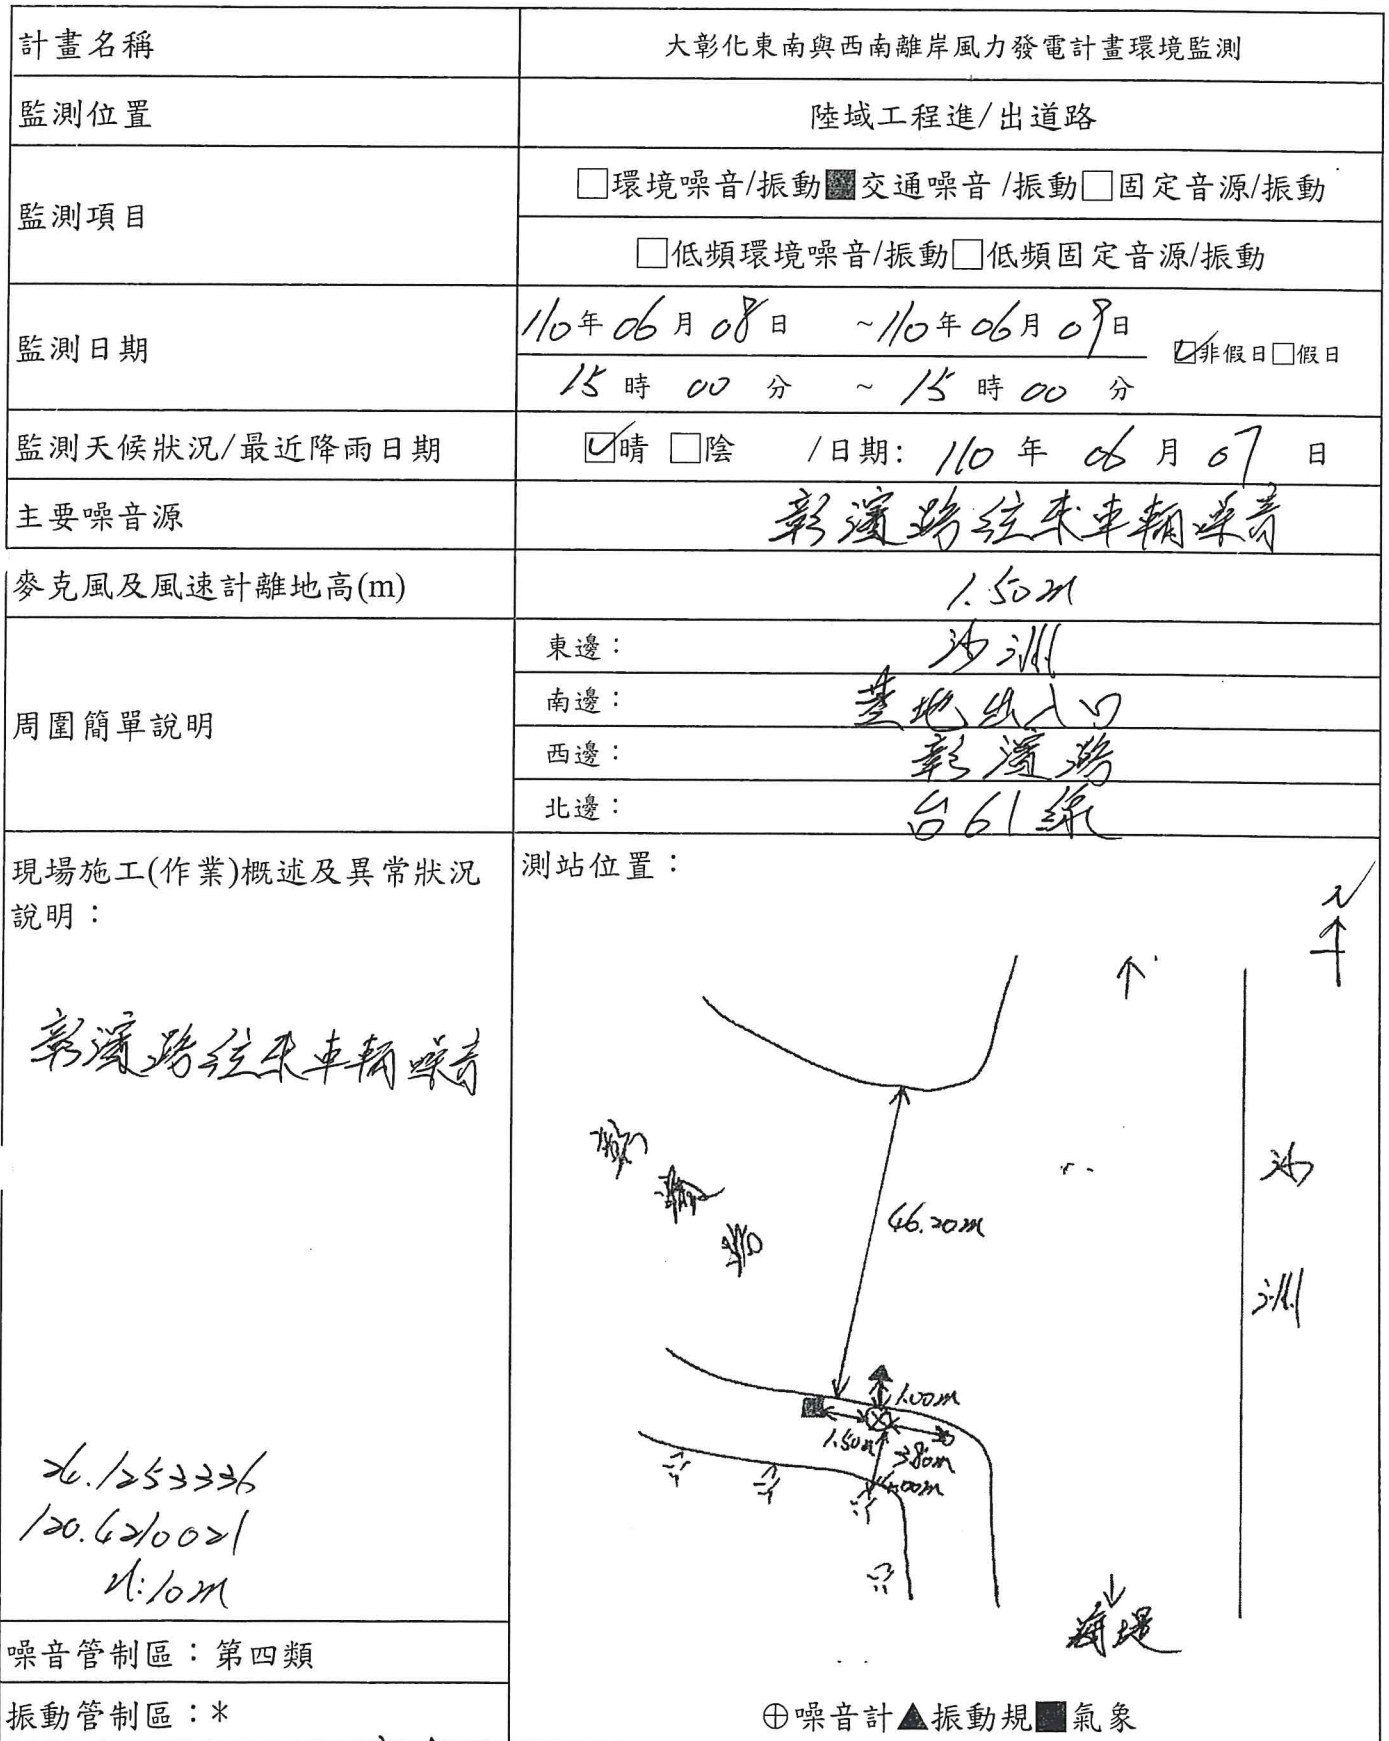 計畫名稱
大彰化東南與西南離岸風力發電計畫環境監測
監測位置
陸域工程進/出道路
監測項目
□環境噪音/振動■交通噪音/振動□固定音源/振動
□低頻環境噪音/振動□低頻固定音源/振動
監測日期
110年06月08日 ~110年06月09日
☑非假日□假日
15時00分 ~ 15時00分
監測天候狀況/最近降雨日期
☑晴 □陰 /日期: 110年06月07日
主要噪音源
彰濱路往來車輛噪音
麥克風及風速計離地高(m)
1.50m
周圍簡單說明
東邊：沙洲
南邊：基地出入口
西邊：彰濱路
北邊：台61線
現場施工(作業)概述及異常狀況
說明：
彰濱路往來車輛噪音
24.1253336
120.4210021
±:10m
測站位置：
N
彰濱路
46.20m
沙洲
1.00m
1.50m
3.80m
4.00m
海堤
噪音管制區：第四類
振動管制區：*
⊕噪音計▲振動規■氣象